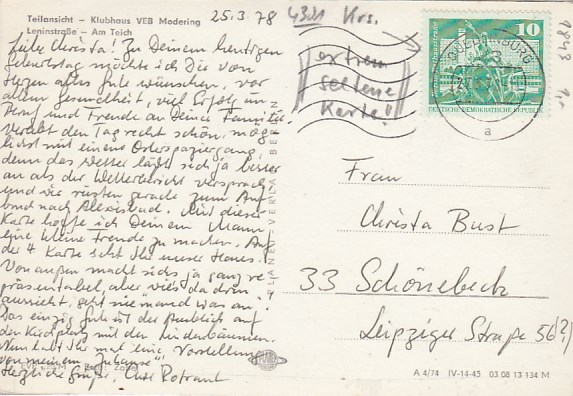 Teilansicht – Klubhaus VEB Modering
Leninstraße – Am Teich
25.3.78
4321 Krs.
extrem
seltene
Karte!
10
DEUTSCHE DEMOKRATISCHE REPUBLIK
a
1843
Liebe Christa! Zu Deinem heutigen
Geburtstag möchte ich Dir von
Herzen alles Gute wünschen, vor
allem Gesundheit, viel Erfolg im
Beruf und Freude an Deiner Familie.
Verlebt den Tag recht schön, mög-
lichst mit einem Osterspaziergang,
denn das Wetter läßt sich ja besser
an als der Wetterbericht versprach
und wir rüsten gerade zum Auf-
bruch nach Alexisbad. Mit dieser
Karte hoffe ich Deinem Mann
eine kleine Freude zu machen. Auf
der 4. Karte seht Ihr unser Haus.
Von außen macht sichs ja ganz re-
präsentabel, aber wies da drin
aussieht, geht niemand was an!
Das einzig Gute ist der Ausblick auf
den Kirchplatz mit den Lindenbäumen.
Nun habt Ihr mal eine Vorstellung
von meinem "Zuhause"
Herzliche Grüße, Eure Rotraut
Frau
Christa Bust
33 Schönebeck
Leipziger Straße 56(?)
A 4/74 IV-14-45 03 08 13 134 M